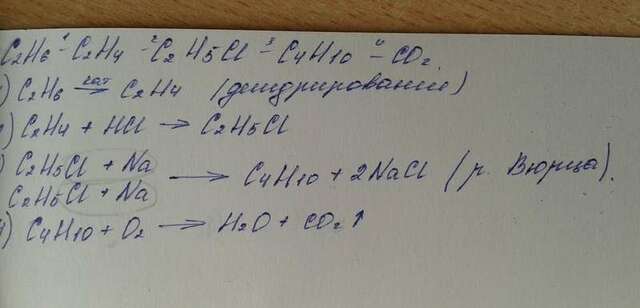 C2H6 -1 C2H4 -2 C2H5Cl -3 C4H10 -4 CO2
) C2H6 кат → C2H4 (дегидрирование)
) C2H4 + HCl → C2H5Cl
) C2H5Cl + Na
C2H5Cl + Na → C4H10 + 2NaCl (р. Вюрца).
4) C4H10 + O2 → H2O + CO2↑